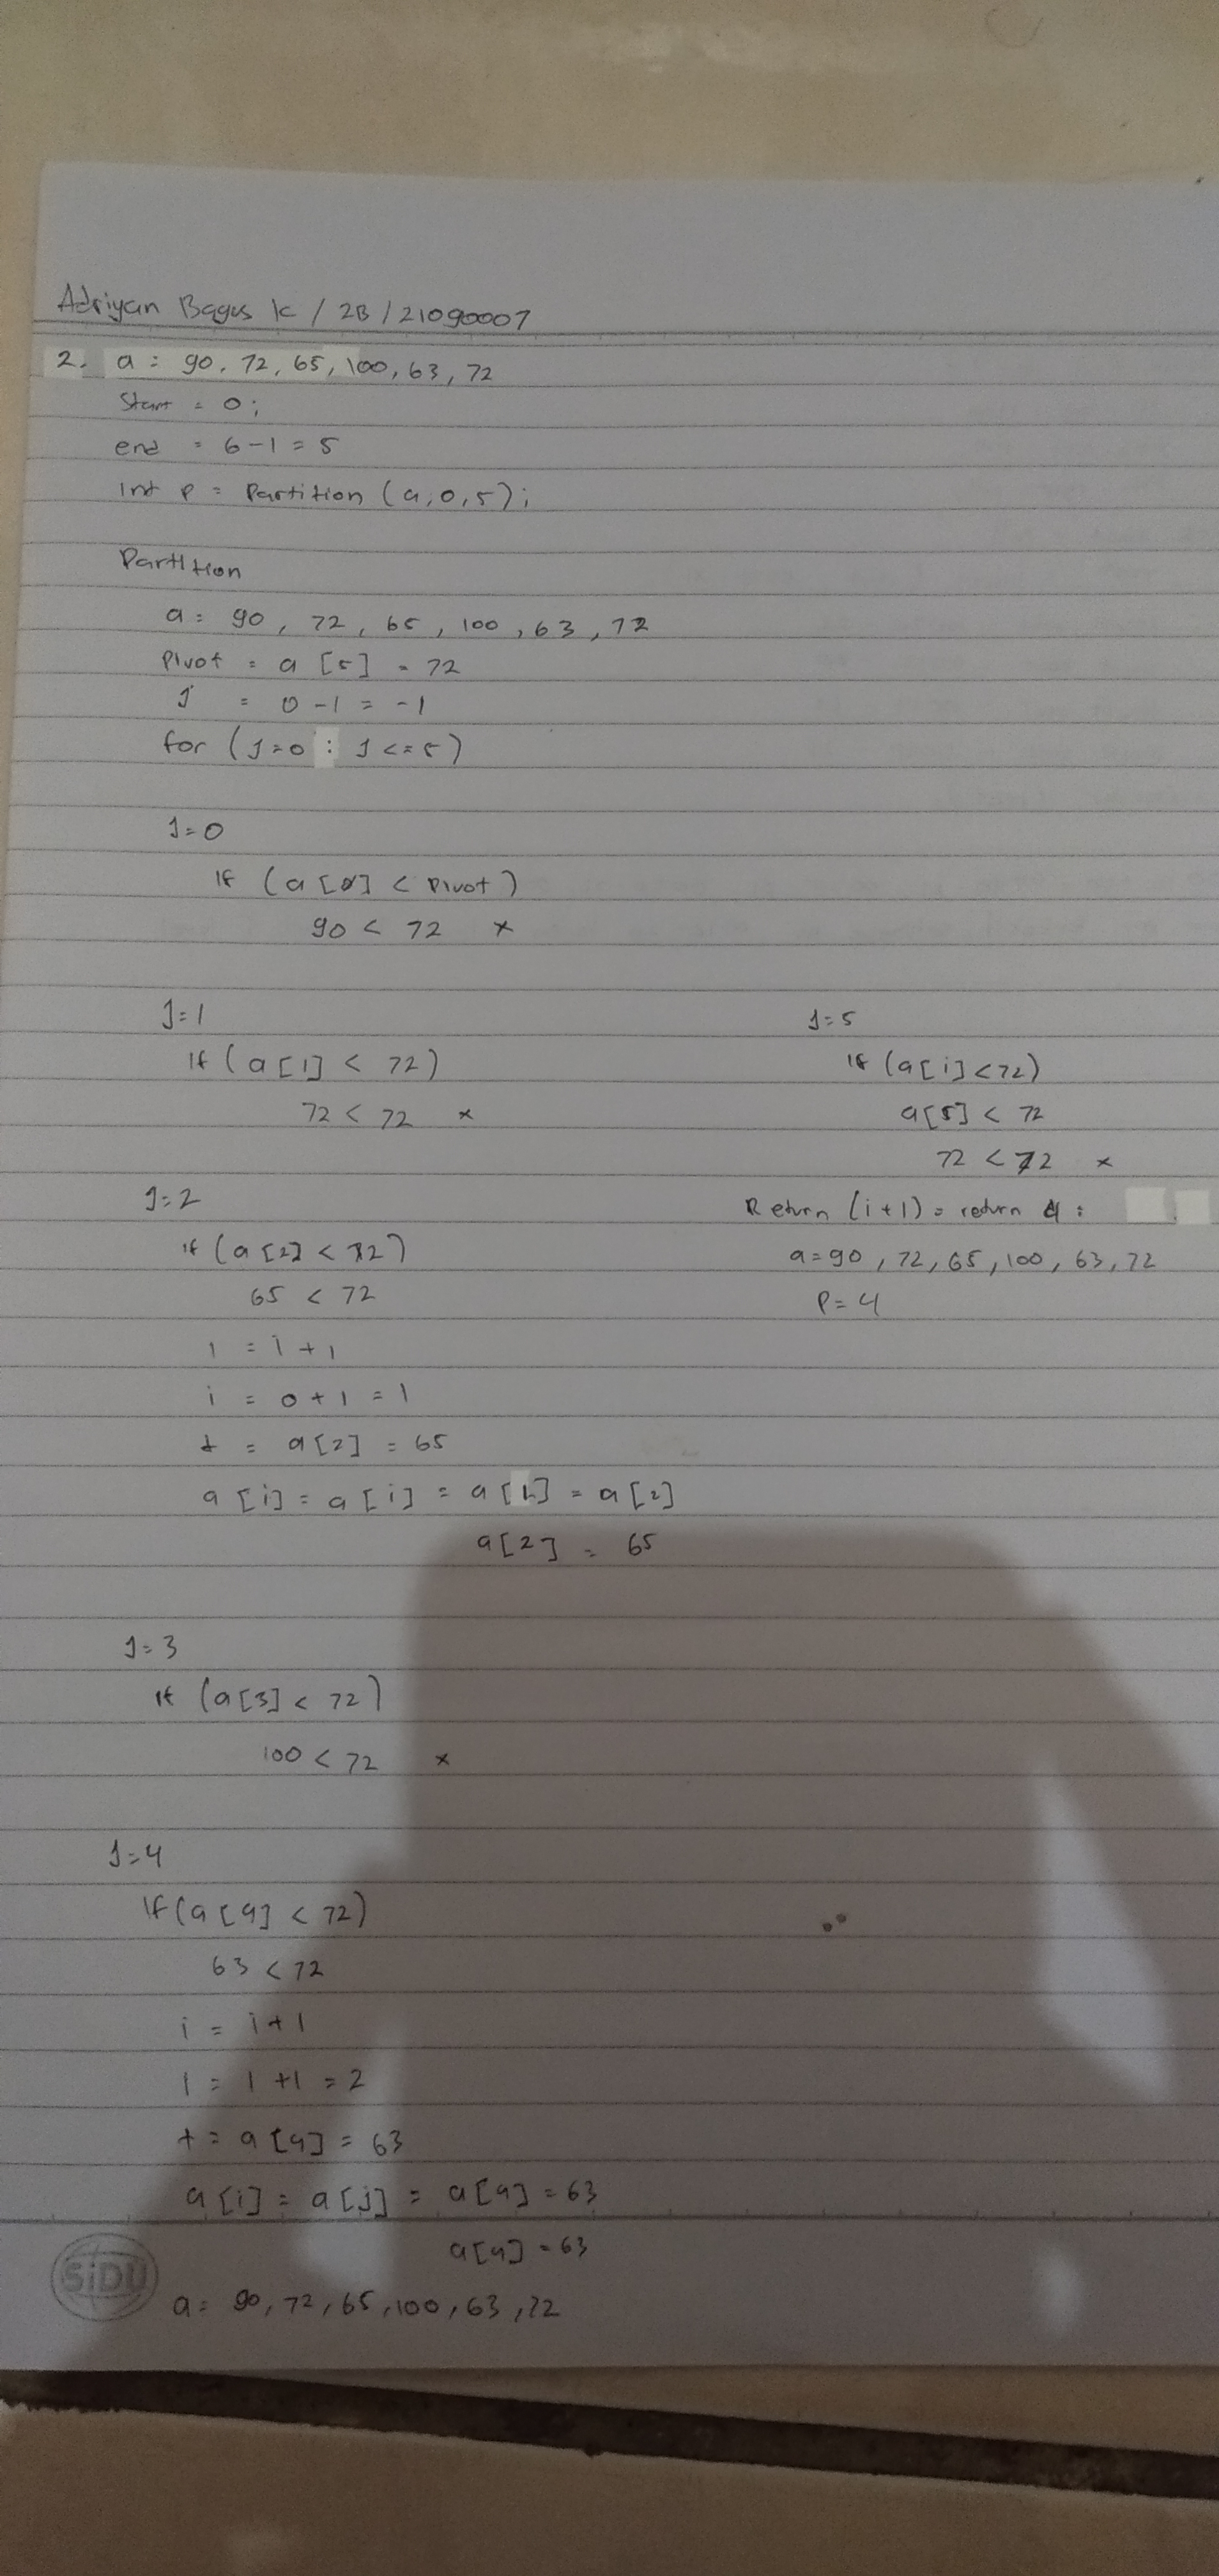 Adriyan Bagus K / 2B / 21090007
2. a : 90, 72, 65, 100, 63, 72
Start = 0;
end = 6-1 = 5
Int P = Partition (a,0,5);
Partition
a = 90, 72, 65, 100, 63, 72
Pivot = a [5] = 72
j = 0-1 = -1
for (J=0 : J <= 5)
J=0
If (a [0] < Pivot)
90 < 72 x
J=1
If (a [1] < 72)
72 < 72 x
J=2
if (a [2] < 72)
65 < 72
i = i + 1
i = 0 + 1 = 1
t = a [2] = 65
a [i] = a [i] = a [1] = a [2]
a [2] = 65
J=3
If (a [3] < 72)
100 < 72 x
J=4
If (a [4] < 72)
63 < 72
i = i+1
i = 1 +1 = 2
t = a [4] = 63
a [i] = a [j] = a [4] = 63
a [4] = 63
SiDU
a = 90, 72, 65, 100, 63, 72
J=5
If (a [i] < 72)
a [5] < 72
72 < 72 x
Return (i+1) = return 4 :
a = 90, 72, 65, 100, 63, 72
P = 4